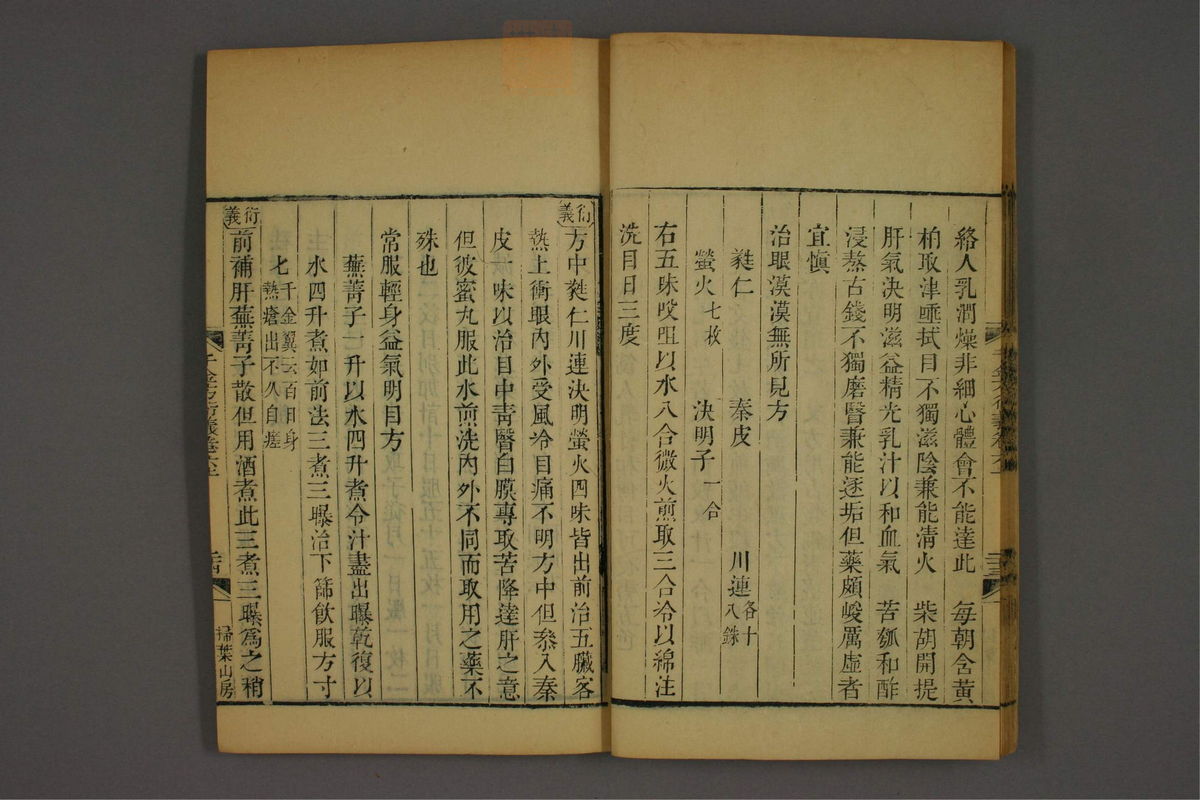 絡人乳潤燥非細心體會不能達此　每朝含黃
柏取津唾拭目不獨滋陰兼能清火　柴胡開提
肝氣決明滋益精光乳汁以和血氣　苦瓠和酢
浸熬古錢不獨磨翳兼能逐垢但藥頗峻厲虛者
宜慎
治眼漠漠無所見方
蕤仁　秦皮　川連各十八銖
螢火七枚　決明子一合
右五味㕮咀以水八合微火煎取三合冷以綿注
洗目日三度
衍義
方中蕤仁川連決明螢火四味皆出前治五臟客
熱上衝眼內外受風冷目痛不明方中但叅入秦
皮一味以治目中靑翳白膜專取苦降達肝之意
但彼蜜丸服此水煎洗內外不同而取用之藥不
殊也
常服輕身益氣明目方
蕪菁子一升以水四升煮令汁盡出曝乾復以
水四升煮如前法三煮三曝治下篩飲服方寸
匕千金翼云百日身熱瘡出不久自瘥
衍義
前補肝蕪菁子散但用酒煮此三煮三曝爲之稍
千金方衍義卷六上
掃葉山房